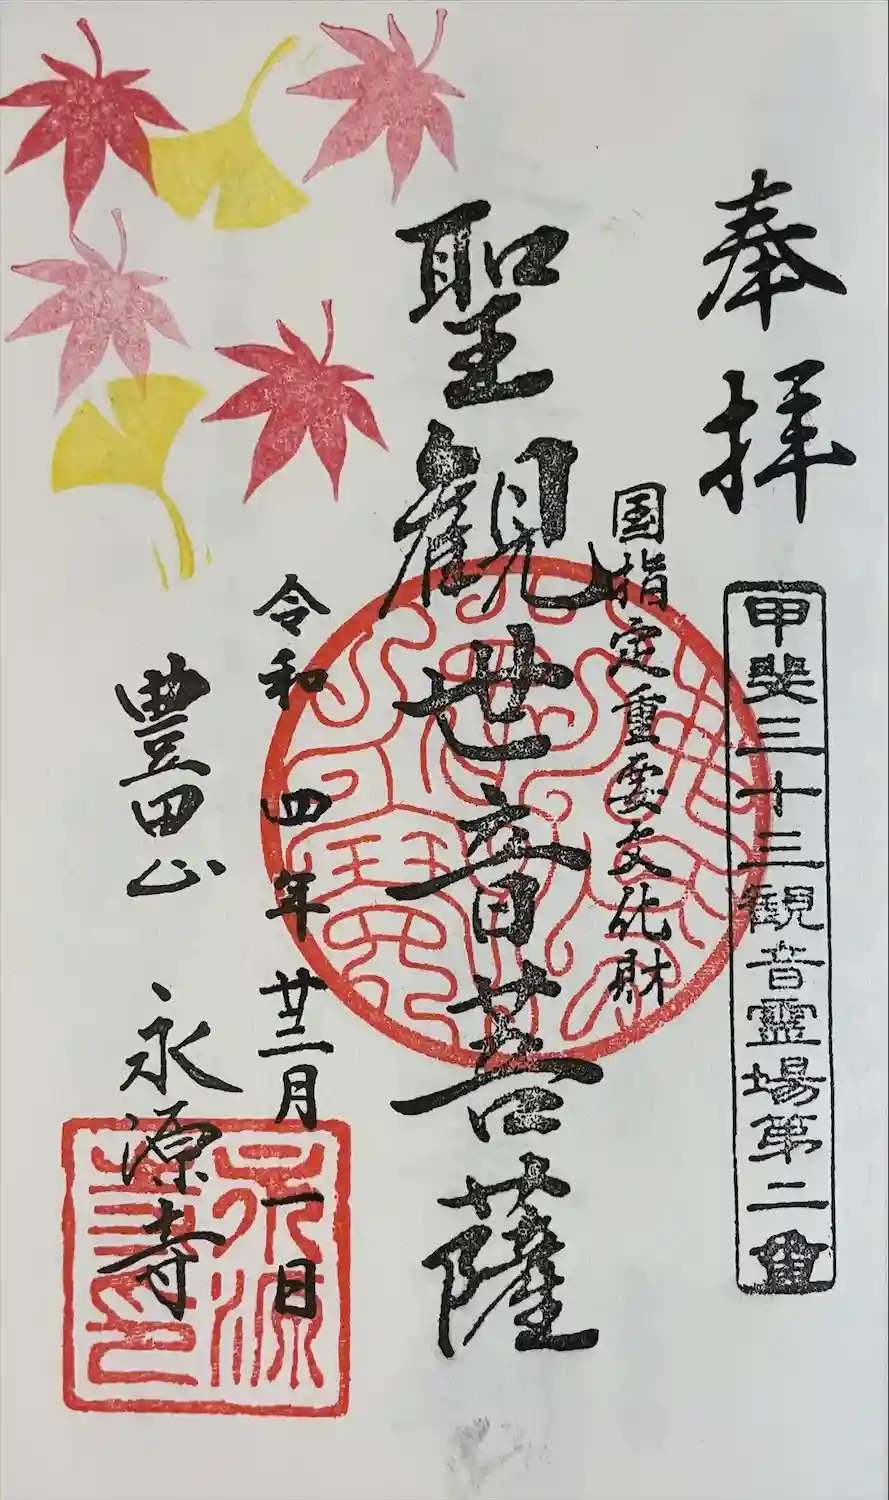 奉拝
甲斐三十三観音霊場第二番
国指定重要文化財
聖観世音菩薩
佛法僧寶
令和四年 月一日
豊田山 永源寺
永源
寺印